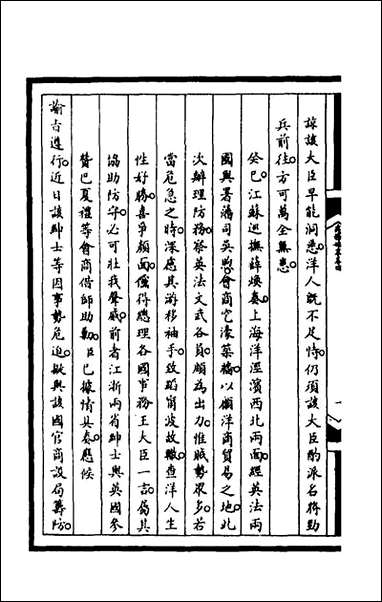 諒該大臣早能洞悉洋人旣不足恃仍須該大臣酌派名將勁
兵前往方可萬全無患
癸巳江蘇巡撫薛煥奏上海洋涇濱西北兩面經英法兩
國與署藩司吳煦會商它濠築牆以衞洋商貿易之地此
次辦理防務察英法文武各員頗為出力惟賊勢衆多若
當危急之時深慮其游移袖手致蹈甯波故轍查洋人生
性好勝喜爭顏面僅得總理各國事務王大臣一言屬其
協助防守必可壯我聲威前者江浙兩省紳士與英國參
贊巴夏禮等會商借師助勦臣已據情具奏應候
諭旨遵行近日該紳士等因事勢危迫擬與該國官商設局籌防